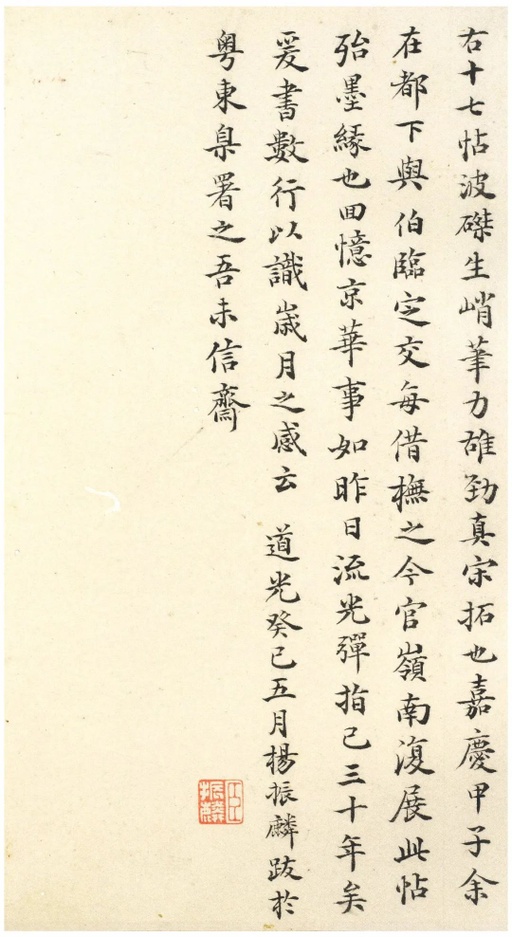 右十七帖波磔生峭筆力雄勁真宋拓也嘉慶甲子余
在都下與伯臨定交每借撫之今官嶺南復展此帖
殆墨緣也回憶京華事如昨日流光彈指已三十年矣
爰書數行以識歲月之感云 道光癸巳五月楊振麟跋於
粵東臬署之吾未信齋
臣振麟